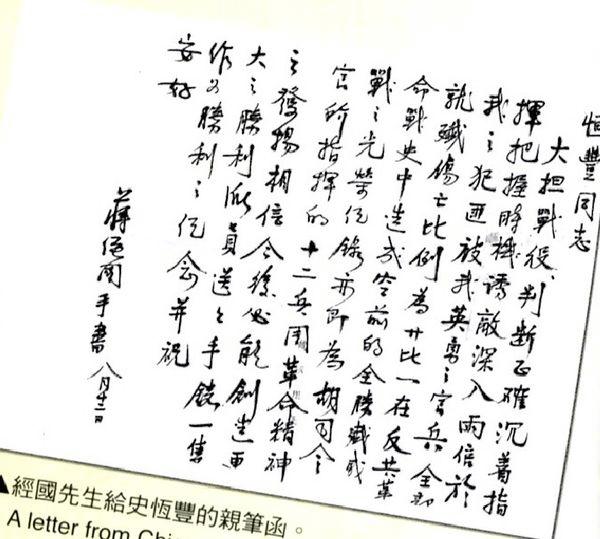 恒豐同志
大担戰役，判斷正確沉着指
揮把握時機誘敵深入兩倍於
我之犯匪被我英勇之官兵全部
就殲傷亡比例為廿比一在反共革
命戰史中造成空前的全勝殲滅
戰之光榮紀錄亦即為胡司令
官所指揮的十二兵團革命精神
之發揚相信今後必能創造更
大之勝利派員送上手錶一隻
作為勝利之紀念并祝
安好
蔣經國手書 八月十二日
▲經國先生給史恆豐的親筆函。
A letter from